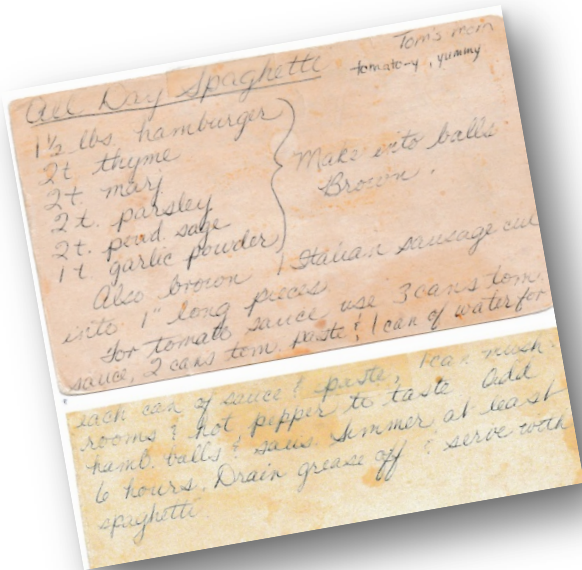 All Day Spaghetti
Tom's mom
tomato-y, yummy
1½ lbs. hamburger
2t thyme
2t. marj
2t. parsley
2t. powd. sage
1t. garlic powder
Make into balls
Brown.
Also brown 1 Italian sausage cut
into 1" long pieces
For tomato sauce use 3 cans tom.
sauce, 2 cans tom. paste & 1 can of water for
each can of sauce & paste, 1 can mush-
rooms & hot pepper to taste Add
hamb. balls & saus. Simmer at least
6 hours. Drain grease off & serve with
spaghetti